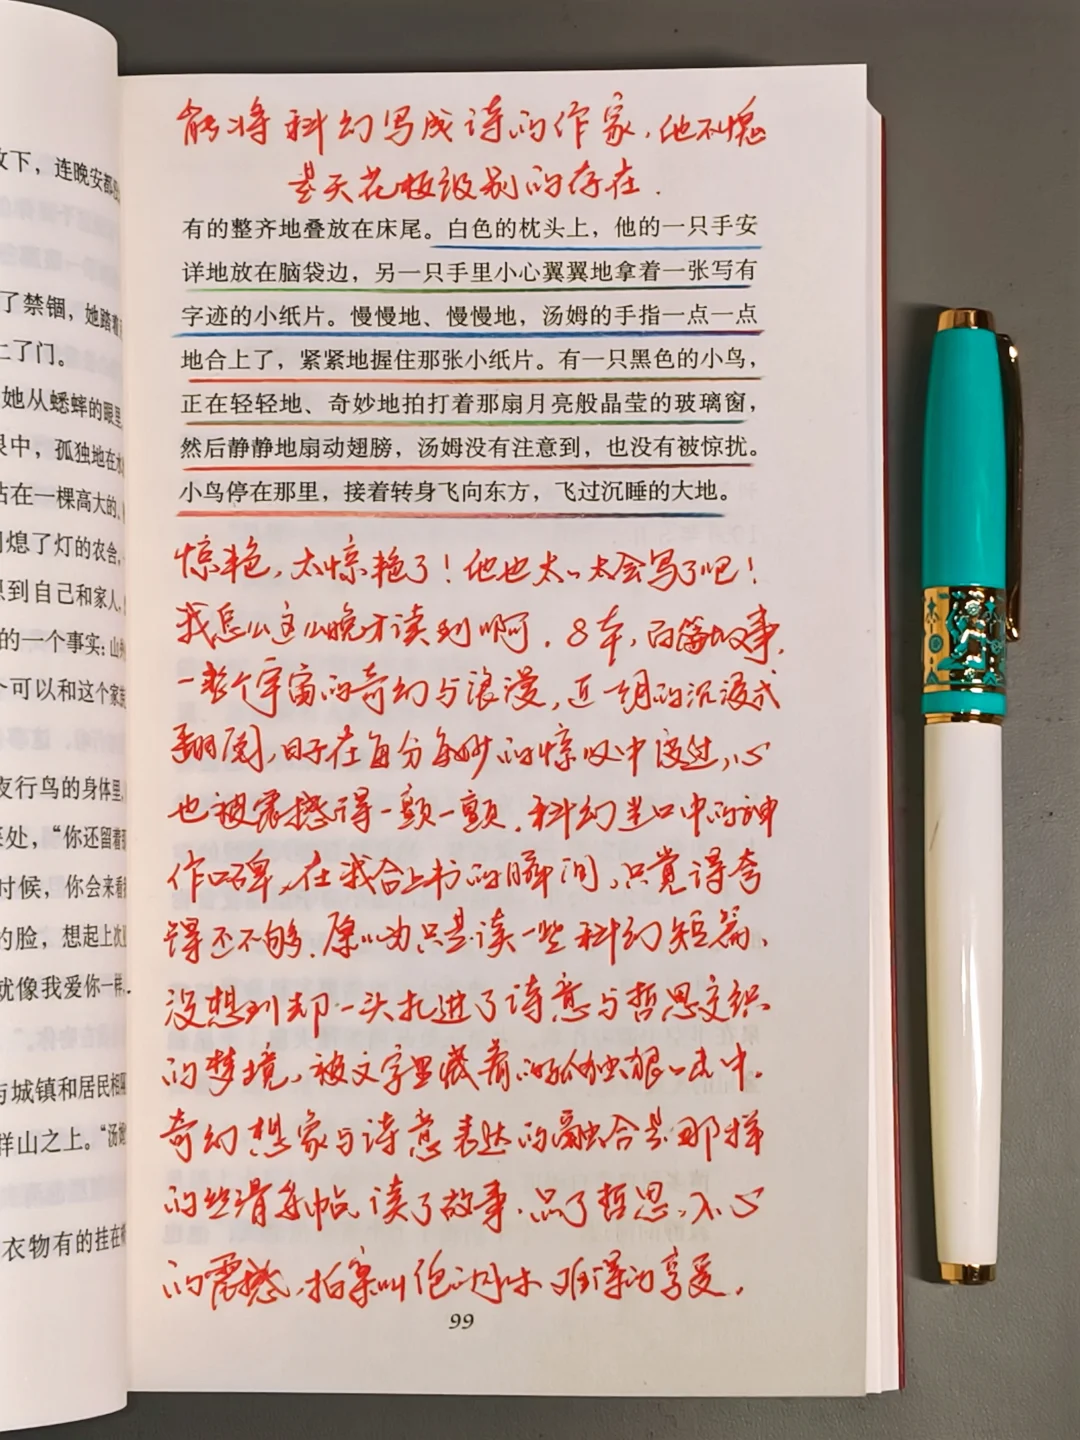 攵下，连晚安都
了禁锢，她踏着
上了门。
她从蟋蟀的眼里
眼中，孤独地在水
站在一棵高大的、
熄了灯的农舍，
想到自己和家人，
的一个事实：山
个可以和这个家
夜行鸟的身体里，
处，“你还留着
时候，你会来看
的脸，想起上次
就像我爱你一样，
与城镇和居民相
样山之上。“汤姆
衣物有的挂在
能将科幻写成诗的作家，他不愧
是天花板级别的存在.
有的整齐地叠放在床尾。白色的枕头上，他的一只手安
详地放在脑袋边，另一只手里小心翼翼地拿着一张写有
字迹的小纸片。慢慢地、慢慢地，汤姆的手指一点一点
地合上了，紧紧地握住那张小纸片。有一只黑色的小鸟，
正在轻轻地、奇妙地拍打着那扇月亮般晶莹的玻璃窗，
然后静静地扇动翅膀，汤姆没有注意到，也没有被惊扰。
小鸟停在那里，接着转身飞向东方，飞过沉睡的大地。
惊艳，太惊艳了！他也太、太会写了吧！
我怎么这么晚才读到啊，8本，百篇故事，
一整个宇宙的奇幻与浪漫，近一月的沉浸式
翻阅，日子在每分每秒的惊叹中度过，心
也被震撼得一颤一颤，科幻迷口中的神
作口碑，在我合上书的瞬间，只觉得夸
得还不够，原以为只是读一些科幻短篇，
没想到却一头扎进了诗意与哲思交织
的梦境，被文字里藏着的孤独狠狠击中。
奇幻想象与诗意表达的融合是那样
的丝滑熨帖，读了故事，品了哲思，入心
的震撼，拍案叫绝的月味难得的享受。
99